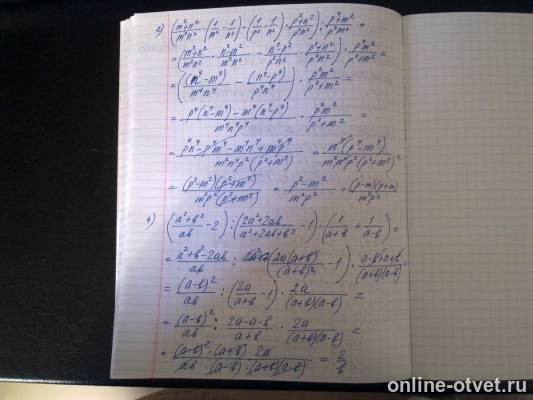 2) ((m²+n²)/(m²n²) · (1/m² - 1/n²) - (1/p² - 1/n²) · (p²+n²)/(p²n²)) : (p²+m²)/(p²m²) =
= ((m²+n²)/(m²n²) · (n²-m²)/(m²n²) - (n²-p²)/(p²n²) · (p²+n²)/(p²n²)) · (p²m²)/(p²+m²) =
= ((n⁴-m⁴)/(m⁴n⁴) - (n⁴-p⁴)/(p⁴n⁴)) · (p²m²)/(p²+m²) =
= (p⁴(n⁴-m⁴) - m⁴(n⁴-p⁴))/(m⁴n⁴p⁴) · (p²m²)/(p²+m²) =
= (p⁴n⁴-p⁴m⁴-m⁴n⁴+m⁴p⁴)/(m²n⁴p²(p²+m²)) = (n⁴(p⁴-m⁴))/(m²n⁴p²(p²+m²)) =
= ((p²-m²)(p²+m²))/(m²p²(p²+m²)) = (p²-m²)/(m²p²) = ((p-m)(p+m))/(m²p²)
4) ((a²+b²)/(ab) - 2) : ((2a²+2ab)/(a²+2ab+b²) - 1) · (1/(a+b) + 1/(a-b)) =
= (a²+b²-2ab)/(ab) : ((2a(a+b))/((a+b)²) - 1) · (a-b+a+b)/((a+b)(a-b)) =
= (a-b)²/(ab) : (2a/(a+b) - 1) · 2a/((a+b)(a-b)) =
= (a-b)²/(ab) : (2a-a-b)/(a+b) · 2a/((a+b)(a-b)) =
= ((a-b)²·(a+b)·2a)/(ab·(a-b)·(a+b)(a-b)) = 2/b
online-otvet.ru